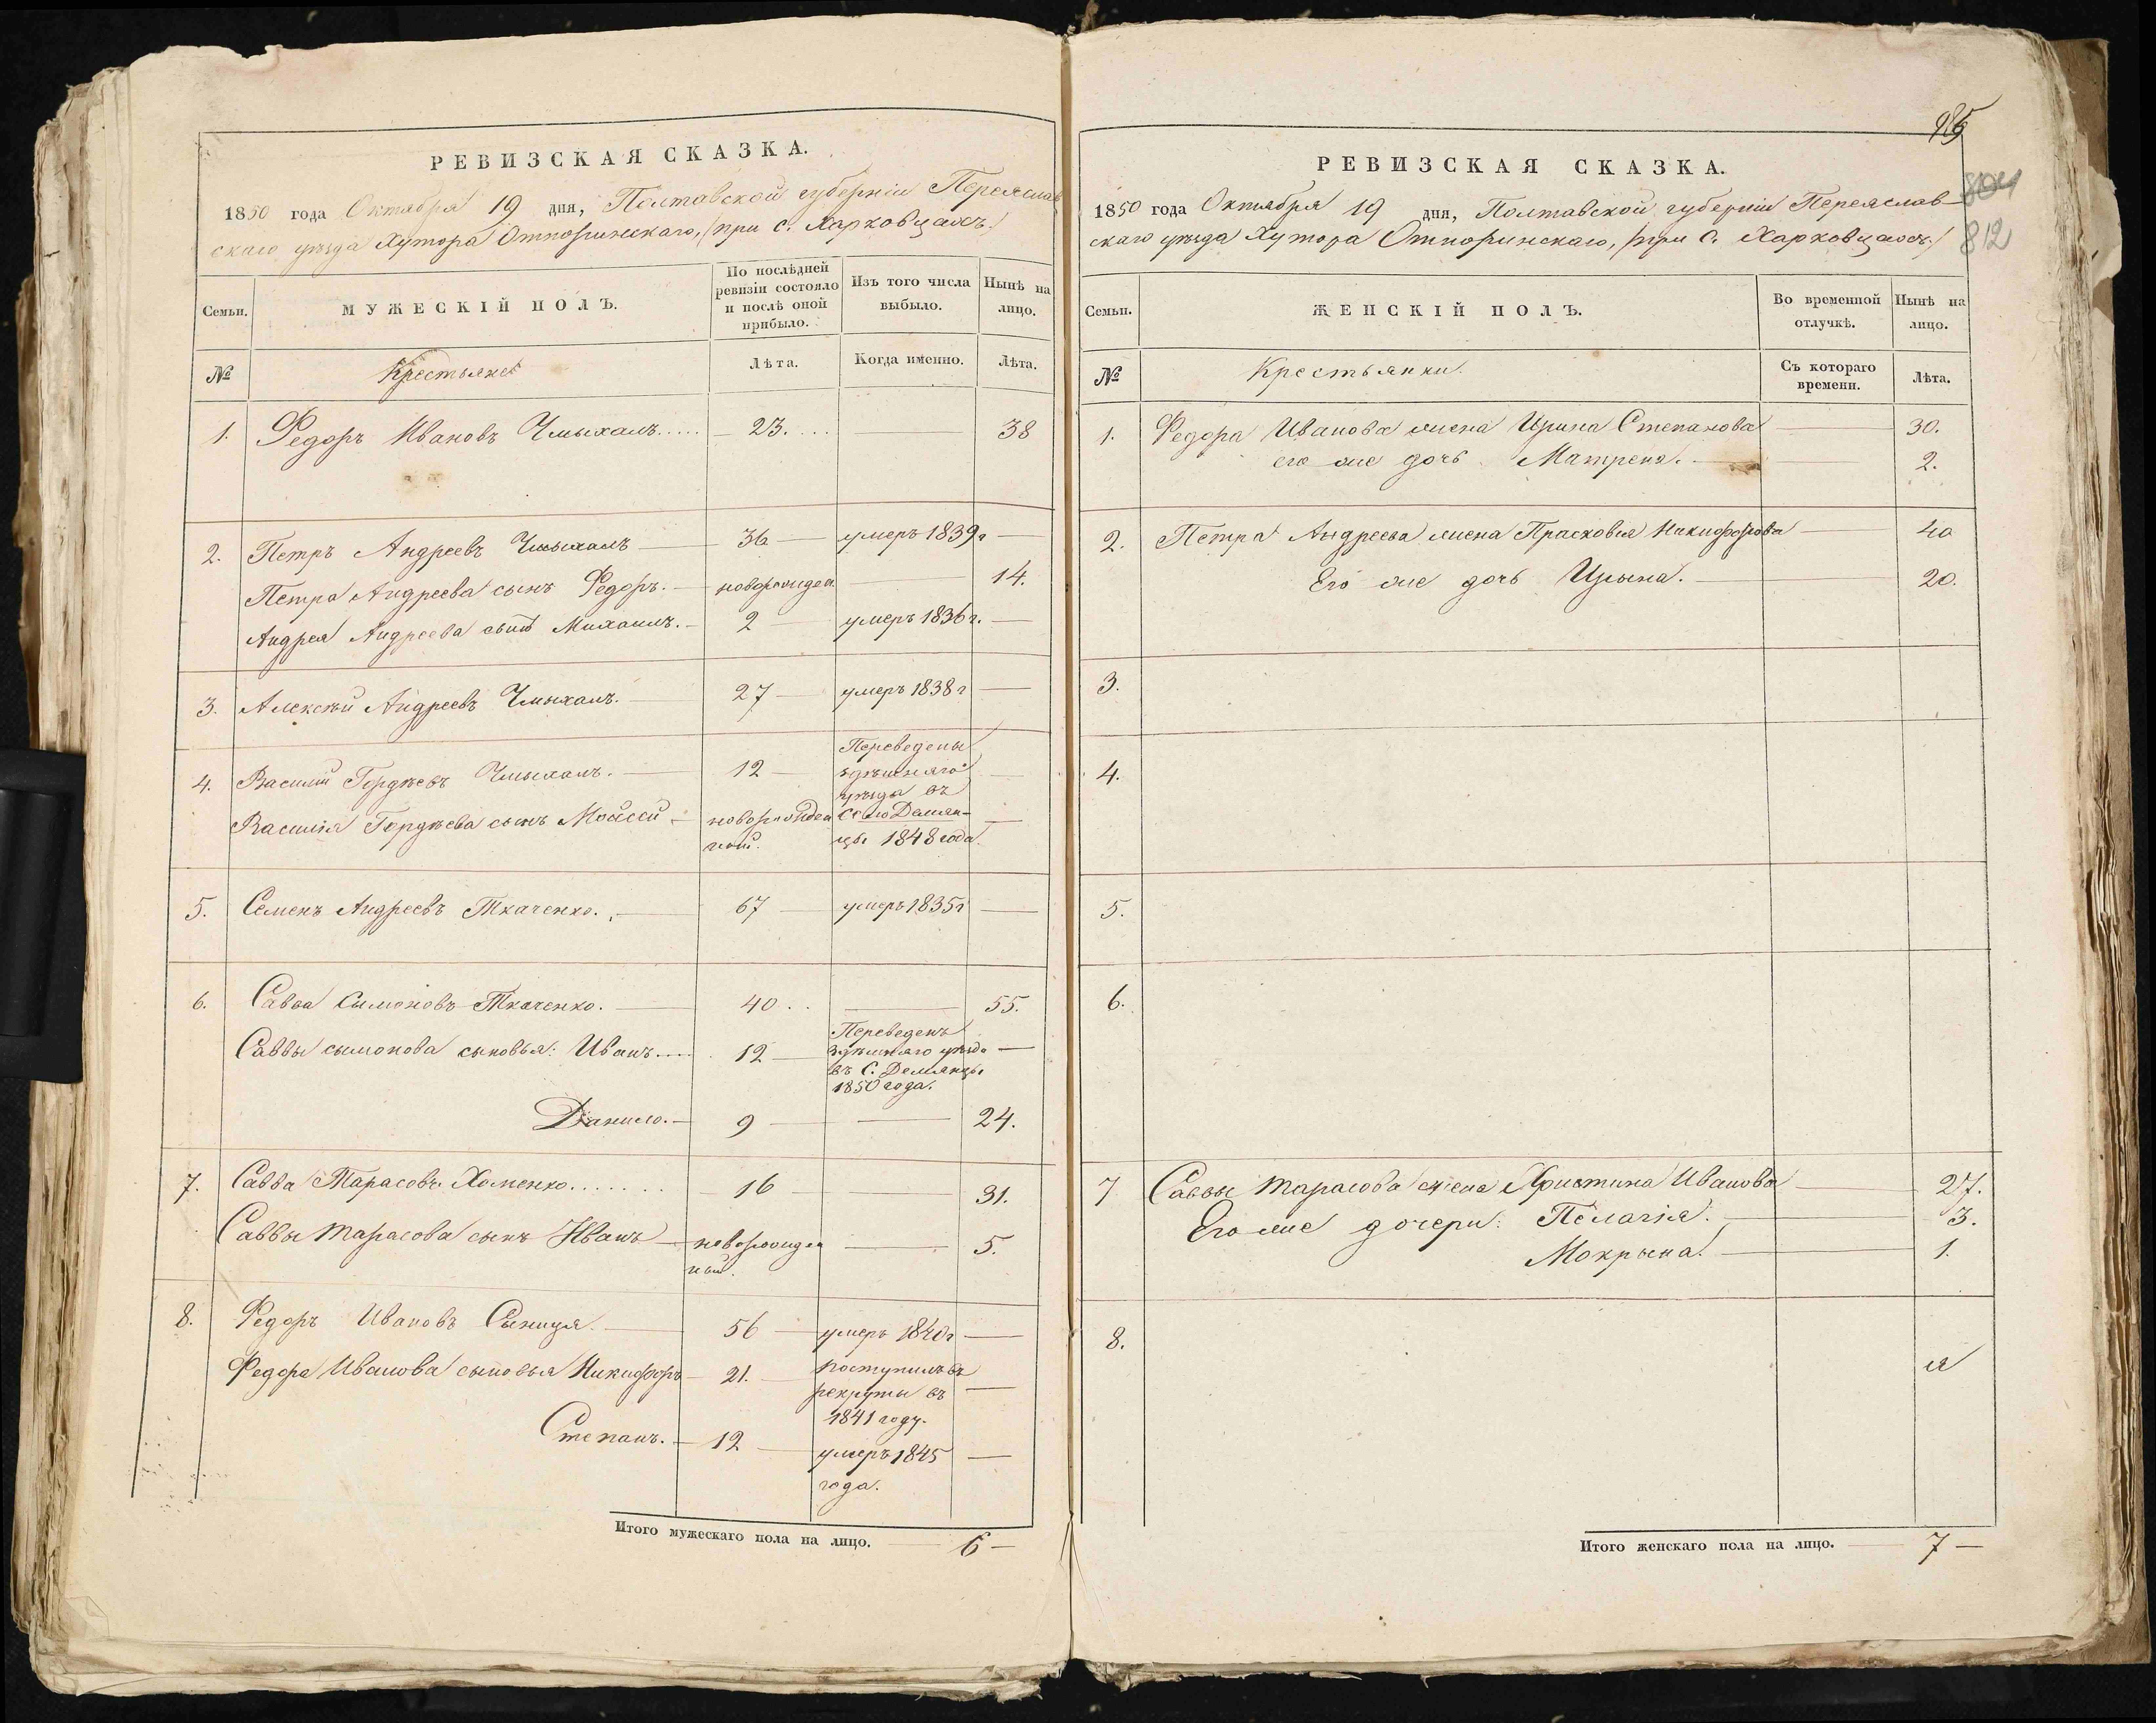 РЕВИЗСКАЯ СКАЗКА.
1850 года Октября 19 дня, Полтавской губерніи Переяслав
скаго уѣзда Хутора (при с. Харковцахъ.)
Семьи.
МУЖЕСКІЙ ПОЛЪ.
По послѣдней
ревизіи состояло
и послѣ оной
прибыло.
Изъ того числа
выбыло.
Нынѣ на
лицо.
№
Крестьяне
Лѣта.
Когда именно.
Лѣта.
1. Федоръ Ивановъ Чмыхалъ..... 23.... 38
2. Петръ Андреевъ Чмыхалъ 36 умеръ 1839г
Петра Андреева сынъ Федоръ. новорожден 14.
Андрея Андреева сынъ Михаилъ. 2 умеръ 1836г.
3. Алексѣй Андреевъ Чмыхалъ. 27 умеръ 1838г
4. Василій Гордѣевъ Чмыхалъ. 12 Переведены
здѣшняго
уѣзда въ
Василія Гордѣева сынъ Мойсей новорожден село Демян-
ный. цы 1848 года.
5. Семенъ Андреевъ Ткаченко. 67 умеръ 1835г
6. Савва Сымоновъ Ткаченко. 40.. 55.
Саввы сымонова сыновья: Иванъ.... 12 Переведенъ
здѣшняго уѣзда
въ С. Демянцы
1850 года.
Данило. 9 24.
7. Савва Тарасовъ Хоменко....... 16 31.
Саввы Тарасова сынъ Иванъ новорожден 5.
ный.
8. Федоръ Ивановъ Сыница. 56 умеръ 1840г
Федора Иванова сыновья Никифоръ 21. поступилъ въ
рекруты въ
1841 году.
Степанъ. 12 умеръ 1845
года.
Итого мужескаго пола на лицо. 6
985
804
812
РЕВИЗСКАЯ СКАЗКА.
1850 года Октября 19 дня, Полтавской губерніи Переяслав
скаго уѣзда Хутора (при с. Харковцахъ.)
Семьи.
ЖЕНСКІЙ ПОЛЪ.
Во временной
отлучкѣ.
Нынѣ на
лицо.
№
Крестьянки.
Съ котораго
времени.
Лѣта.
1. Федора Иванова жена Ирина Степанова 30.
его же дочь Матрена. 2.
2. Петра Андреева жена Прасковья Никифорова 40
Его же дочь Ирына. 20.
3.
4.
5.
6.
7 Саввы Тарасова жена Христина Иванова 27.
Его же дочери: Пелагія. 3.
Мокрына. 1.
8.
Итого женскаго пола на лицо. 7